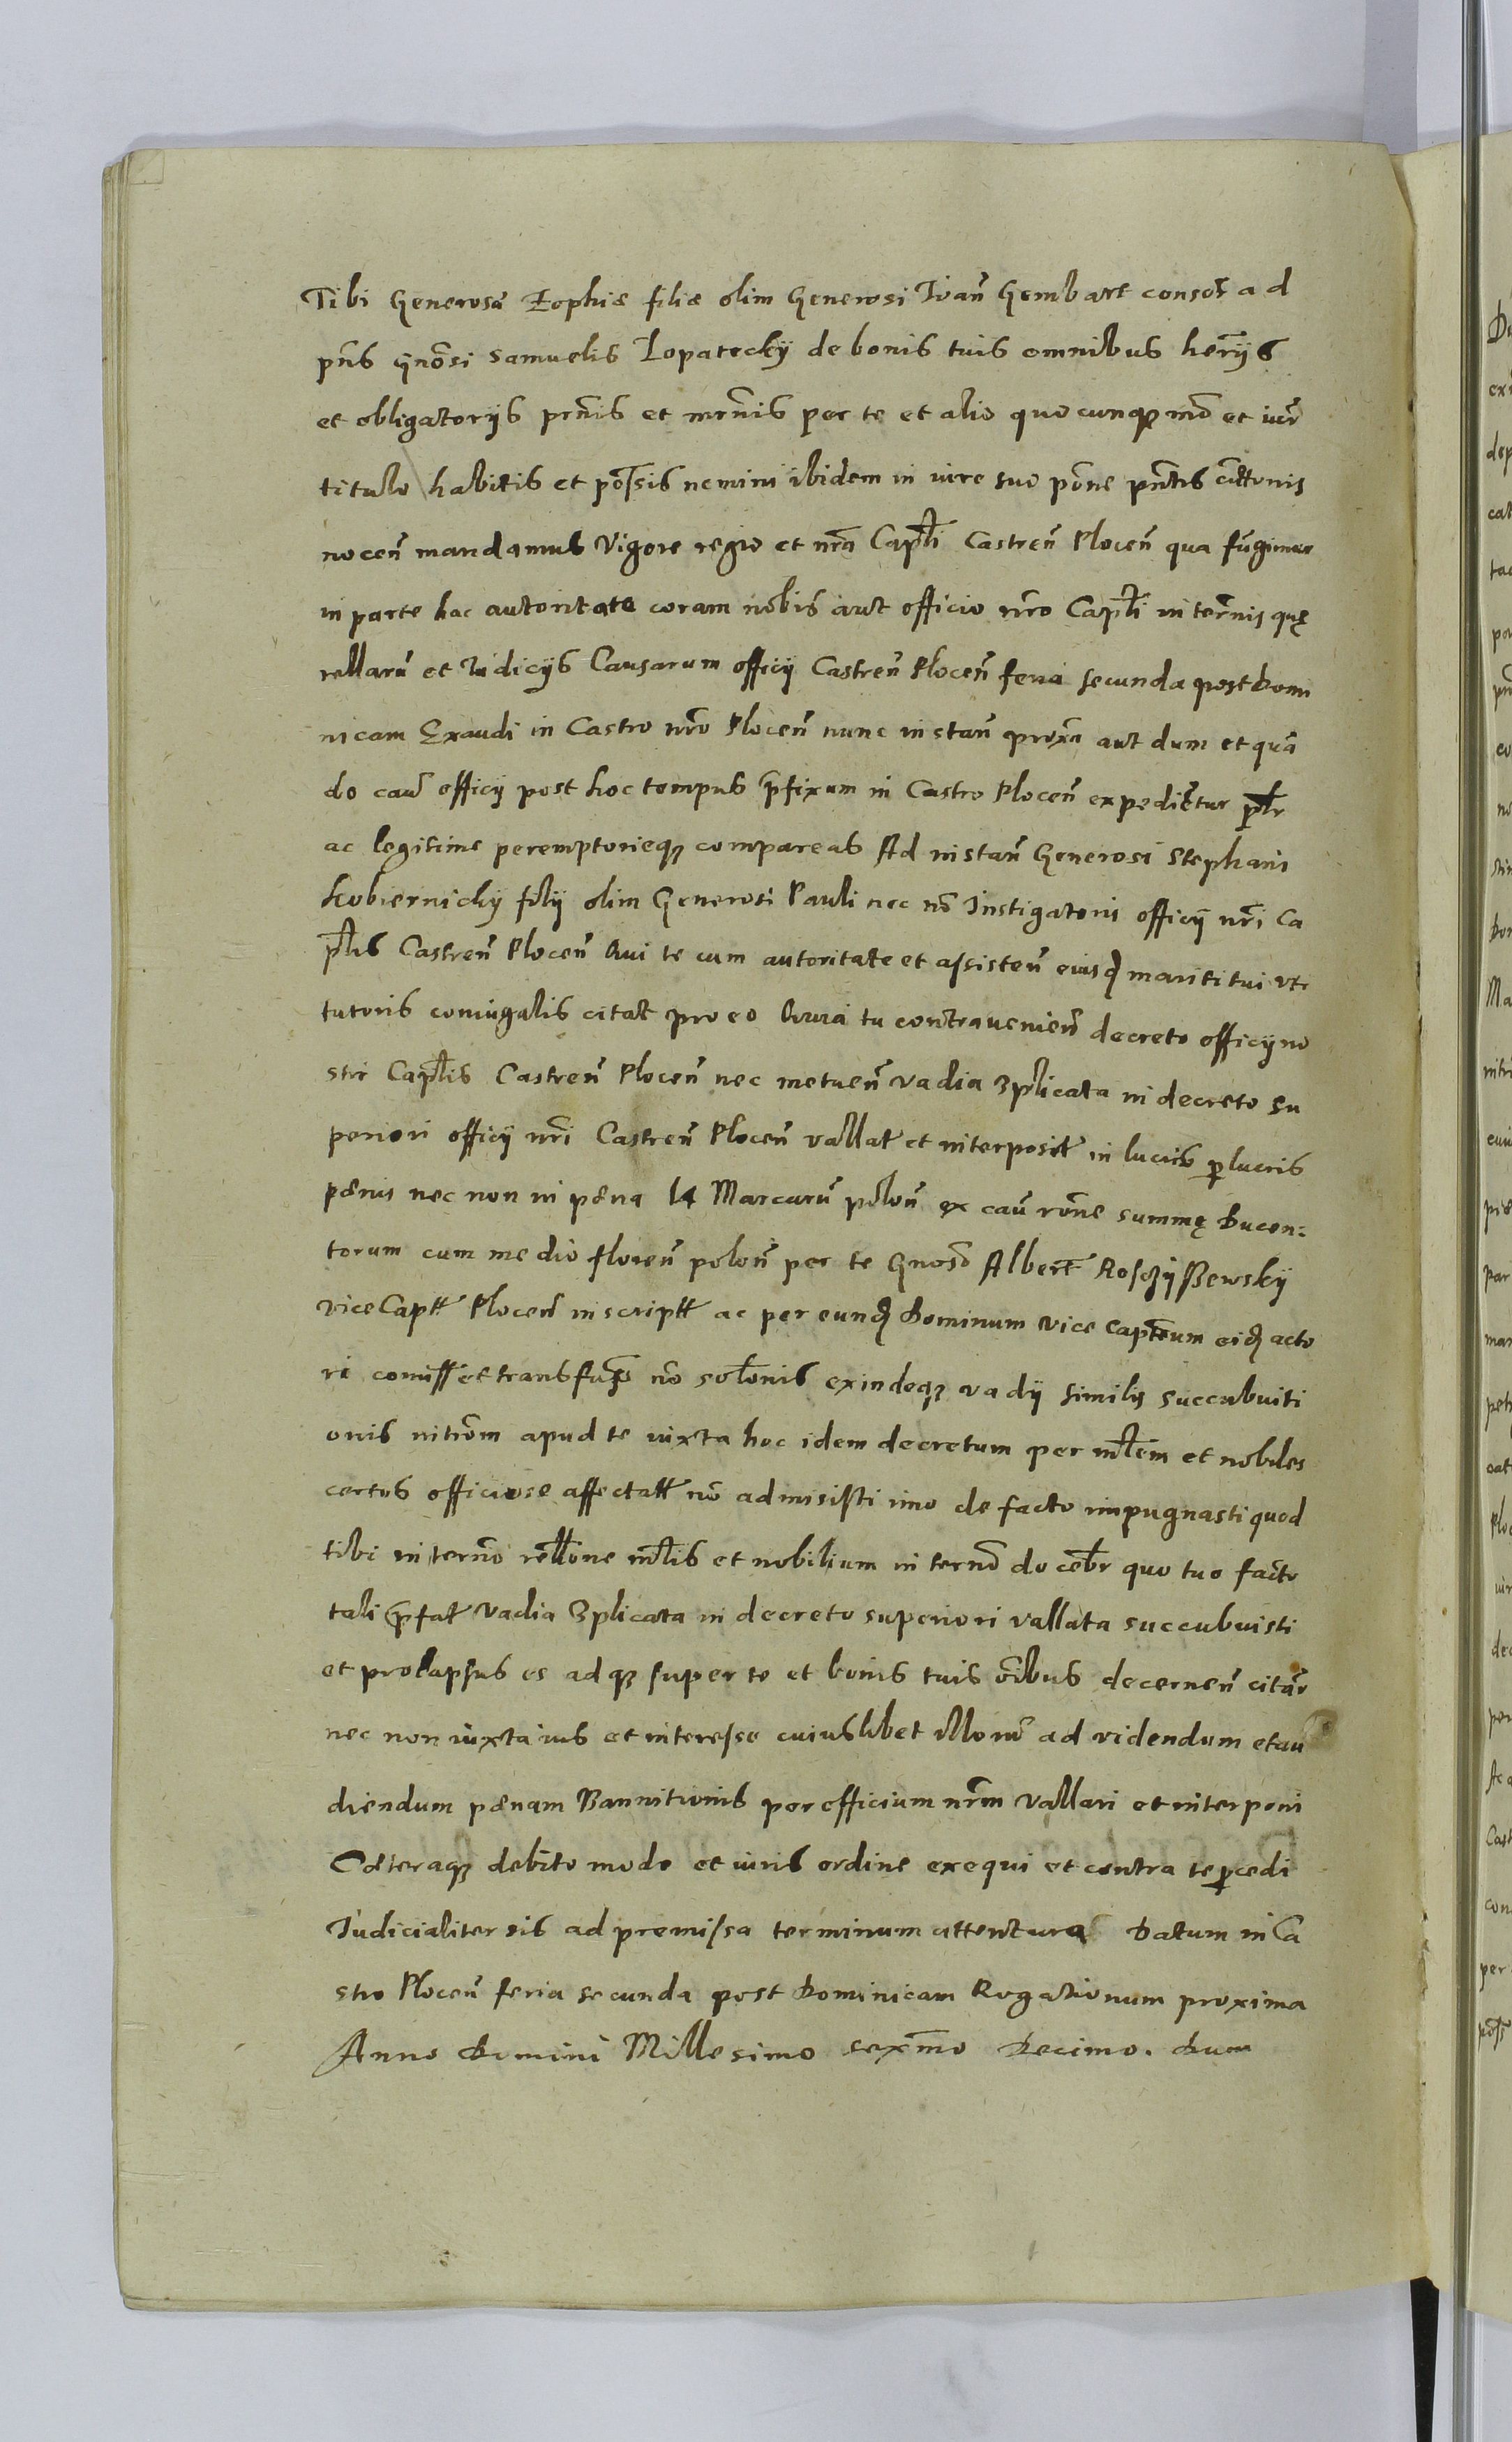 Tibi Generosæ Zophiæ filiæ olim Generosi Ioañ Gembart consor̃ ad
pñs gñosi Samuelis Lopatecky de bonis tuis omnibus her̃ijs
et obligatorijs pr̃nis et mr̃nis per te et alio quocunqꝫ mõ et iur̃
titulo habitis et põssis nemini ibidem in iure suo põne pñtis cittonis
nocen̄ mandamus Vigore regio et nr̃a Capt̃li Castren̄ Plocen̄ qua fũgimur
in parte hac autoritate coram nobis aut officio nr̃o Capt̃li in ter̃nis quę
rellarũ et Iudicijs Causarum officij Castren̄ Plocen̄ feria secunda post Domi
nicam Exaudi in Castro nr̃o Plocen̄ nunc instan̄ prox̃a aut dum et quã
do cau͂ officij post hoc tempus p̃fixum in Castro Plocen̄ expedir̃tur pl̃r
ac legitime peremptorieqꝫ compareas Ad instan̄ Generosi Stephani
Kobiernicky filij olim Generosi Pauli nec nõ Instigatoris officij nr̃i Ca
pt̃lis Castren̄ Plocen̄ Qui te cum autoritate et assisten̄ eiusd̃ mariti tui uti
tutoris coniugalis citat pro eo Quia tu contravenien̄ decreto officij no
stri Capt̃lis Castren̄ Plocen̄ nec metuen̄ vadia 3plicata in decreto su
periori officij nr̃i Castren̄ Plocen̄ vallat̃ et interposit̃ in lucris perlucris
pænis nec non in pæna 14 Marcarũ polon̄ ex cau͂ rõne summę Ducen:
torum cum medio floren̄ polon̄ per te Gnoso Albert̃ Roscziszewsky
viceCapt̃ Plocen̄ inscript̃ ac per eund̃ Dominum vice Capt̃eum eid̃ acto
ri comiss̃ et transfus̃ nõ sol̃onis exindeqꝫ vadij similis succubuiti
onis nitr̃om apud te iuxta hoc idem decretum per ml̃em et nobiles
certos officiose affectatt̃ nõ admisisti imo de facto impugnasti quod
tibi in ter̃no rellõne ml̃is et nobilium in ter̃no docebr̃ quo tuo facto
tali p̃fat̃ vadia 3plicata in decreto superiori vallata succubuisti
et prolapsus es adqꝫ super te et bonis tuis õibus decernen̄ citar̃
nec non iuxta ius et interesse cuiuslibet illorũ ad videndum et au
diendum pænam Bannitionis per officium nr̃m vallari et interponi
Cæteraqꝫ debito modo et iuris ordine exequi et contra te p̃cedi
Iudicialiter sis ad premissa terminum attentura Datum in Ca
stro Plocen̄ feria secunda post Dominicam Rogationum proxima
Anno Domini Millesimo sexmo̅ Decimo. Dum